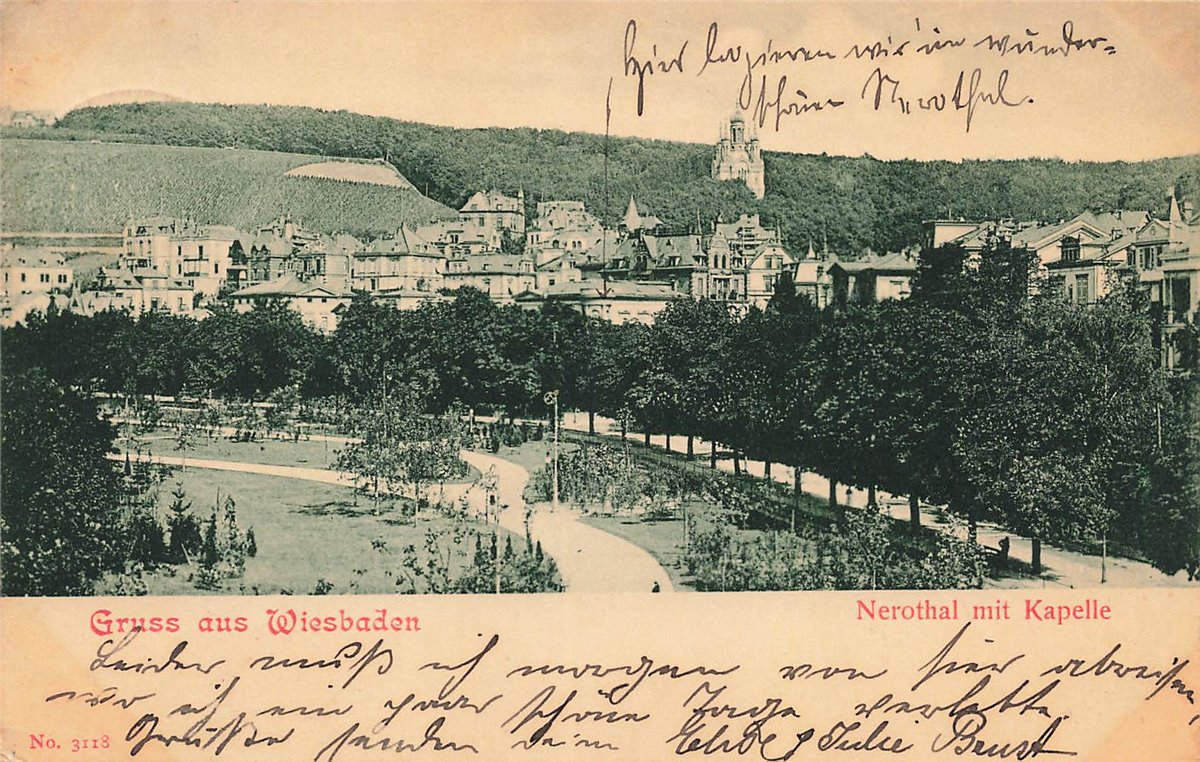 Hier logieren wir im wunder-
schönen Nerothal.
Gruss aus Wiesbaden
Nerothal mit Kapelle
Leider muß ich morgen von hier abreisen
wo ich ein paar schöne Tage verlebte.
No. 3118
Grüße senden dein Julie